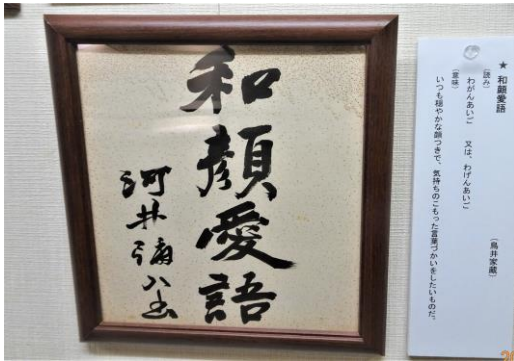 和顔愛語
河井彌八書
★ 和顔愛語
〔鳥井家蔵〕
〔読み〕
わがんあいご 又は、わげんあいご
〔意味〕
いつも穏やかな顔つきで、気持ちのこもった言葉づかいをしたいものだ。